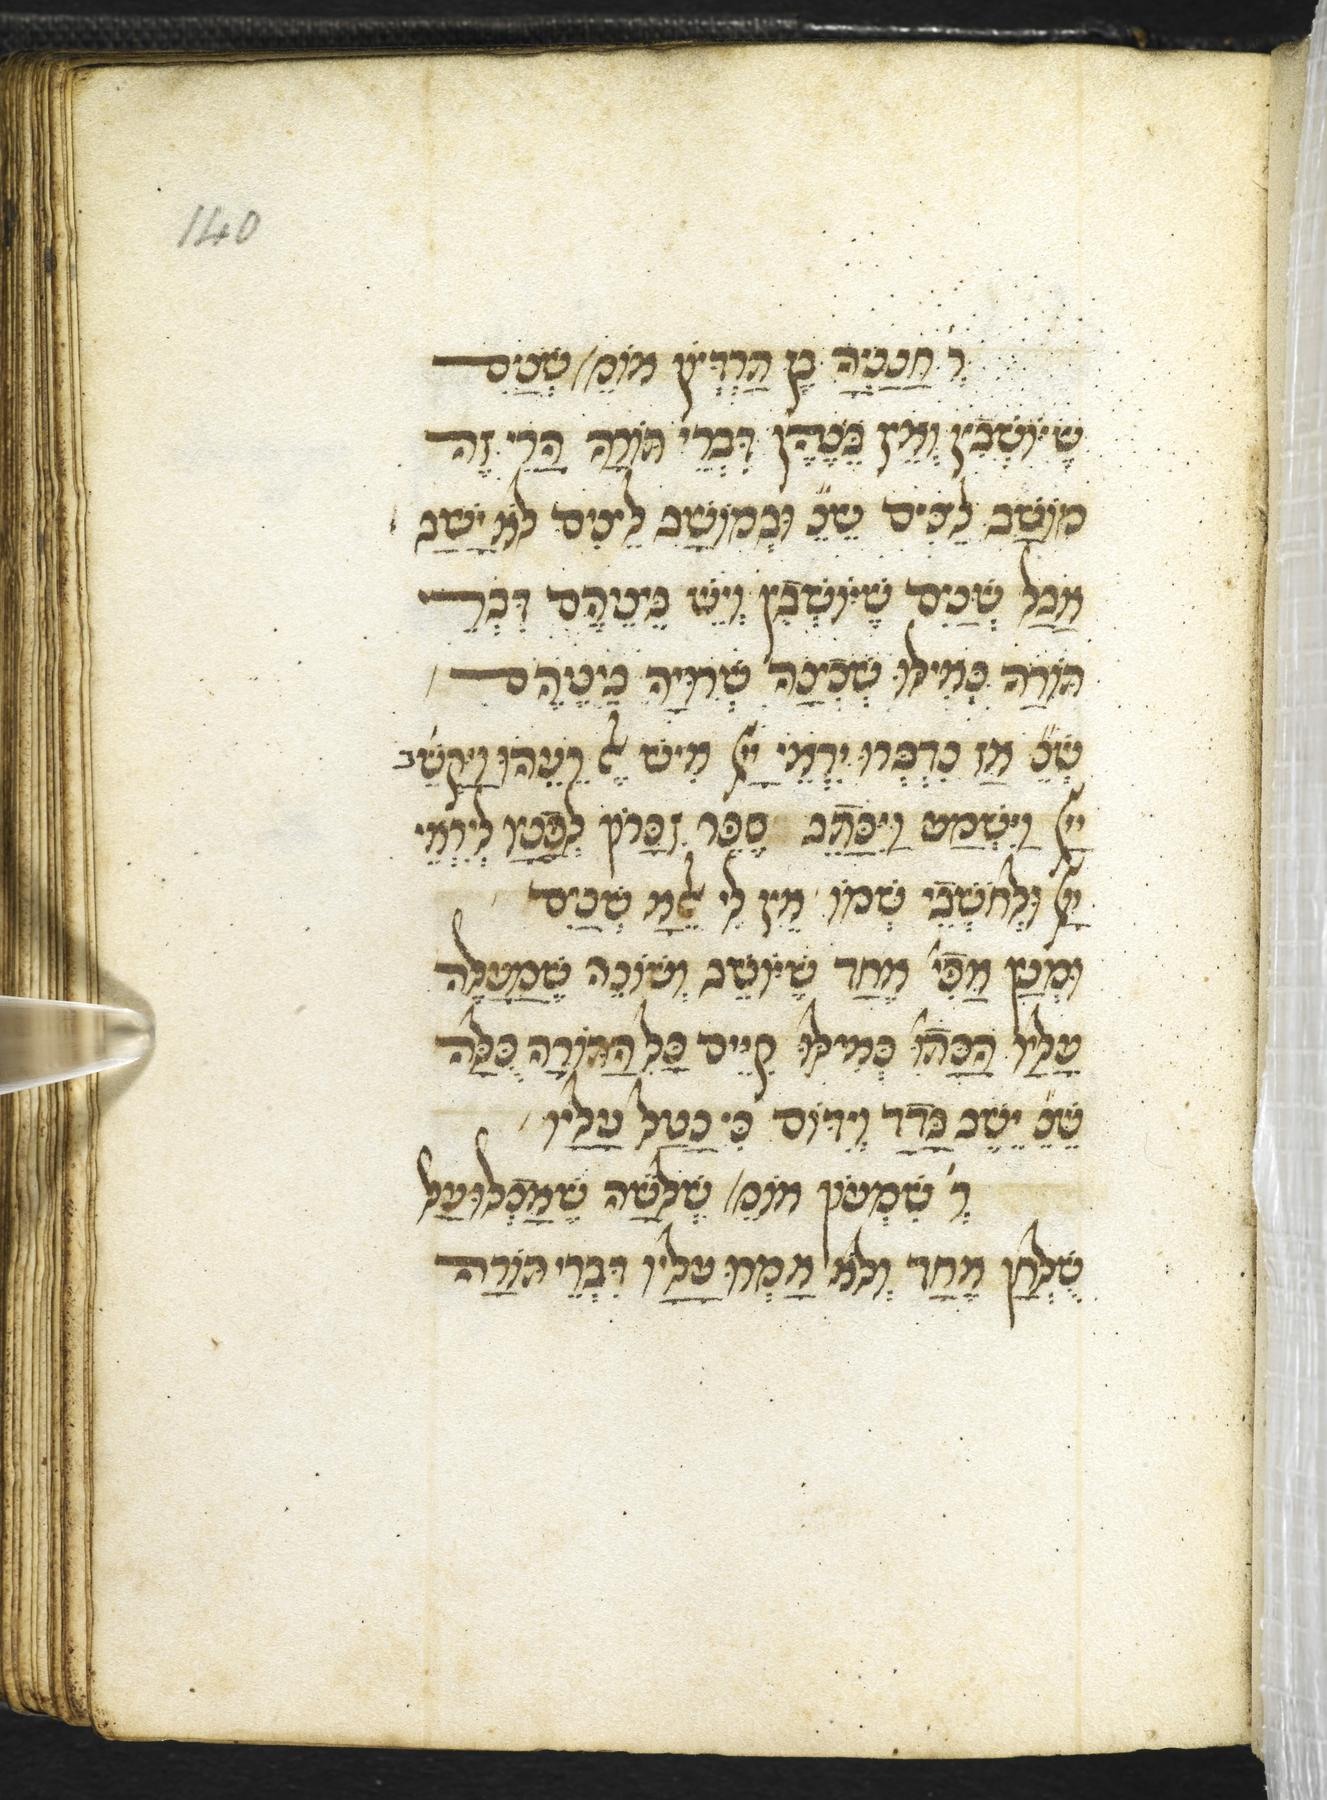 140
ר' חֲנַנְיָה בֶּן תְּרַדְיוֹן אוֹמֵ' שְׁנַיִם
שֶׁיּוֹשְׁבִין וְאֵין בֵּנֵהֶן דִּבְרֵי תוֹרָה הֲרֵי זֶה
מוֹשַׁב לֵצִים שֶׁנֶּ' וּבְמוֹשַׁב לֵצִים לֹא יָשַׁב
אֲבָל שְׁנַיִם שֶׁיּוֹשְׁבִין וְיֵשׁ בֵּינֵיהֶם דִּבְרֵי
תּוֹרָה כְּאִילּוּ שְׁכִינָה שְׁרוּיָה בֵּינֵיהֶם
שֶׁנֶּ' אָז נִדְבְּרוּ יִרְאֵי יְיָ אִישׁ אֶל רֵעֵהוּ וַיַּקְשֵׁב
יְיָ וַיִּשְׁמַע וַיִּכָּתֵב סֵפֶר זִכָּרוֹן לְפָנָיו לְיִרְאֵי
יְיָ וּלְחֹשְׁבֵי שְׁמוֹ אֵין לִי אֶלָּא שְׁנַיִם
וּמְנַיִן אֲפִי' אֶחָד שֶׁיּוֹשֵׁב וְשׁוֹנֶה שֶׁמַּעֲלֶה
עָלָיו הַכָּתוּ' כְּאִילּוּ קִיֵּים כָּל הַתּוֹרָה כֻּלָּהּ
שֶׁנֶּ' יֵשֵׁב בָּדָד וְיִדּוֹם כִּי נָטַל עָלָיו
ר' שִׁמְעוֹן אוֹמֵ' שְׁלֹשָׁה שֶׁאָכְלוּ עַל
שֻׁלְחָן אֶחָד וְלֹא אָמְרוּ עָלָיו דִּבְרֵי תּוֹרָה